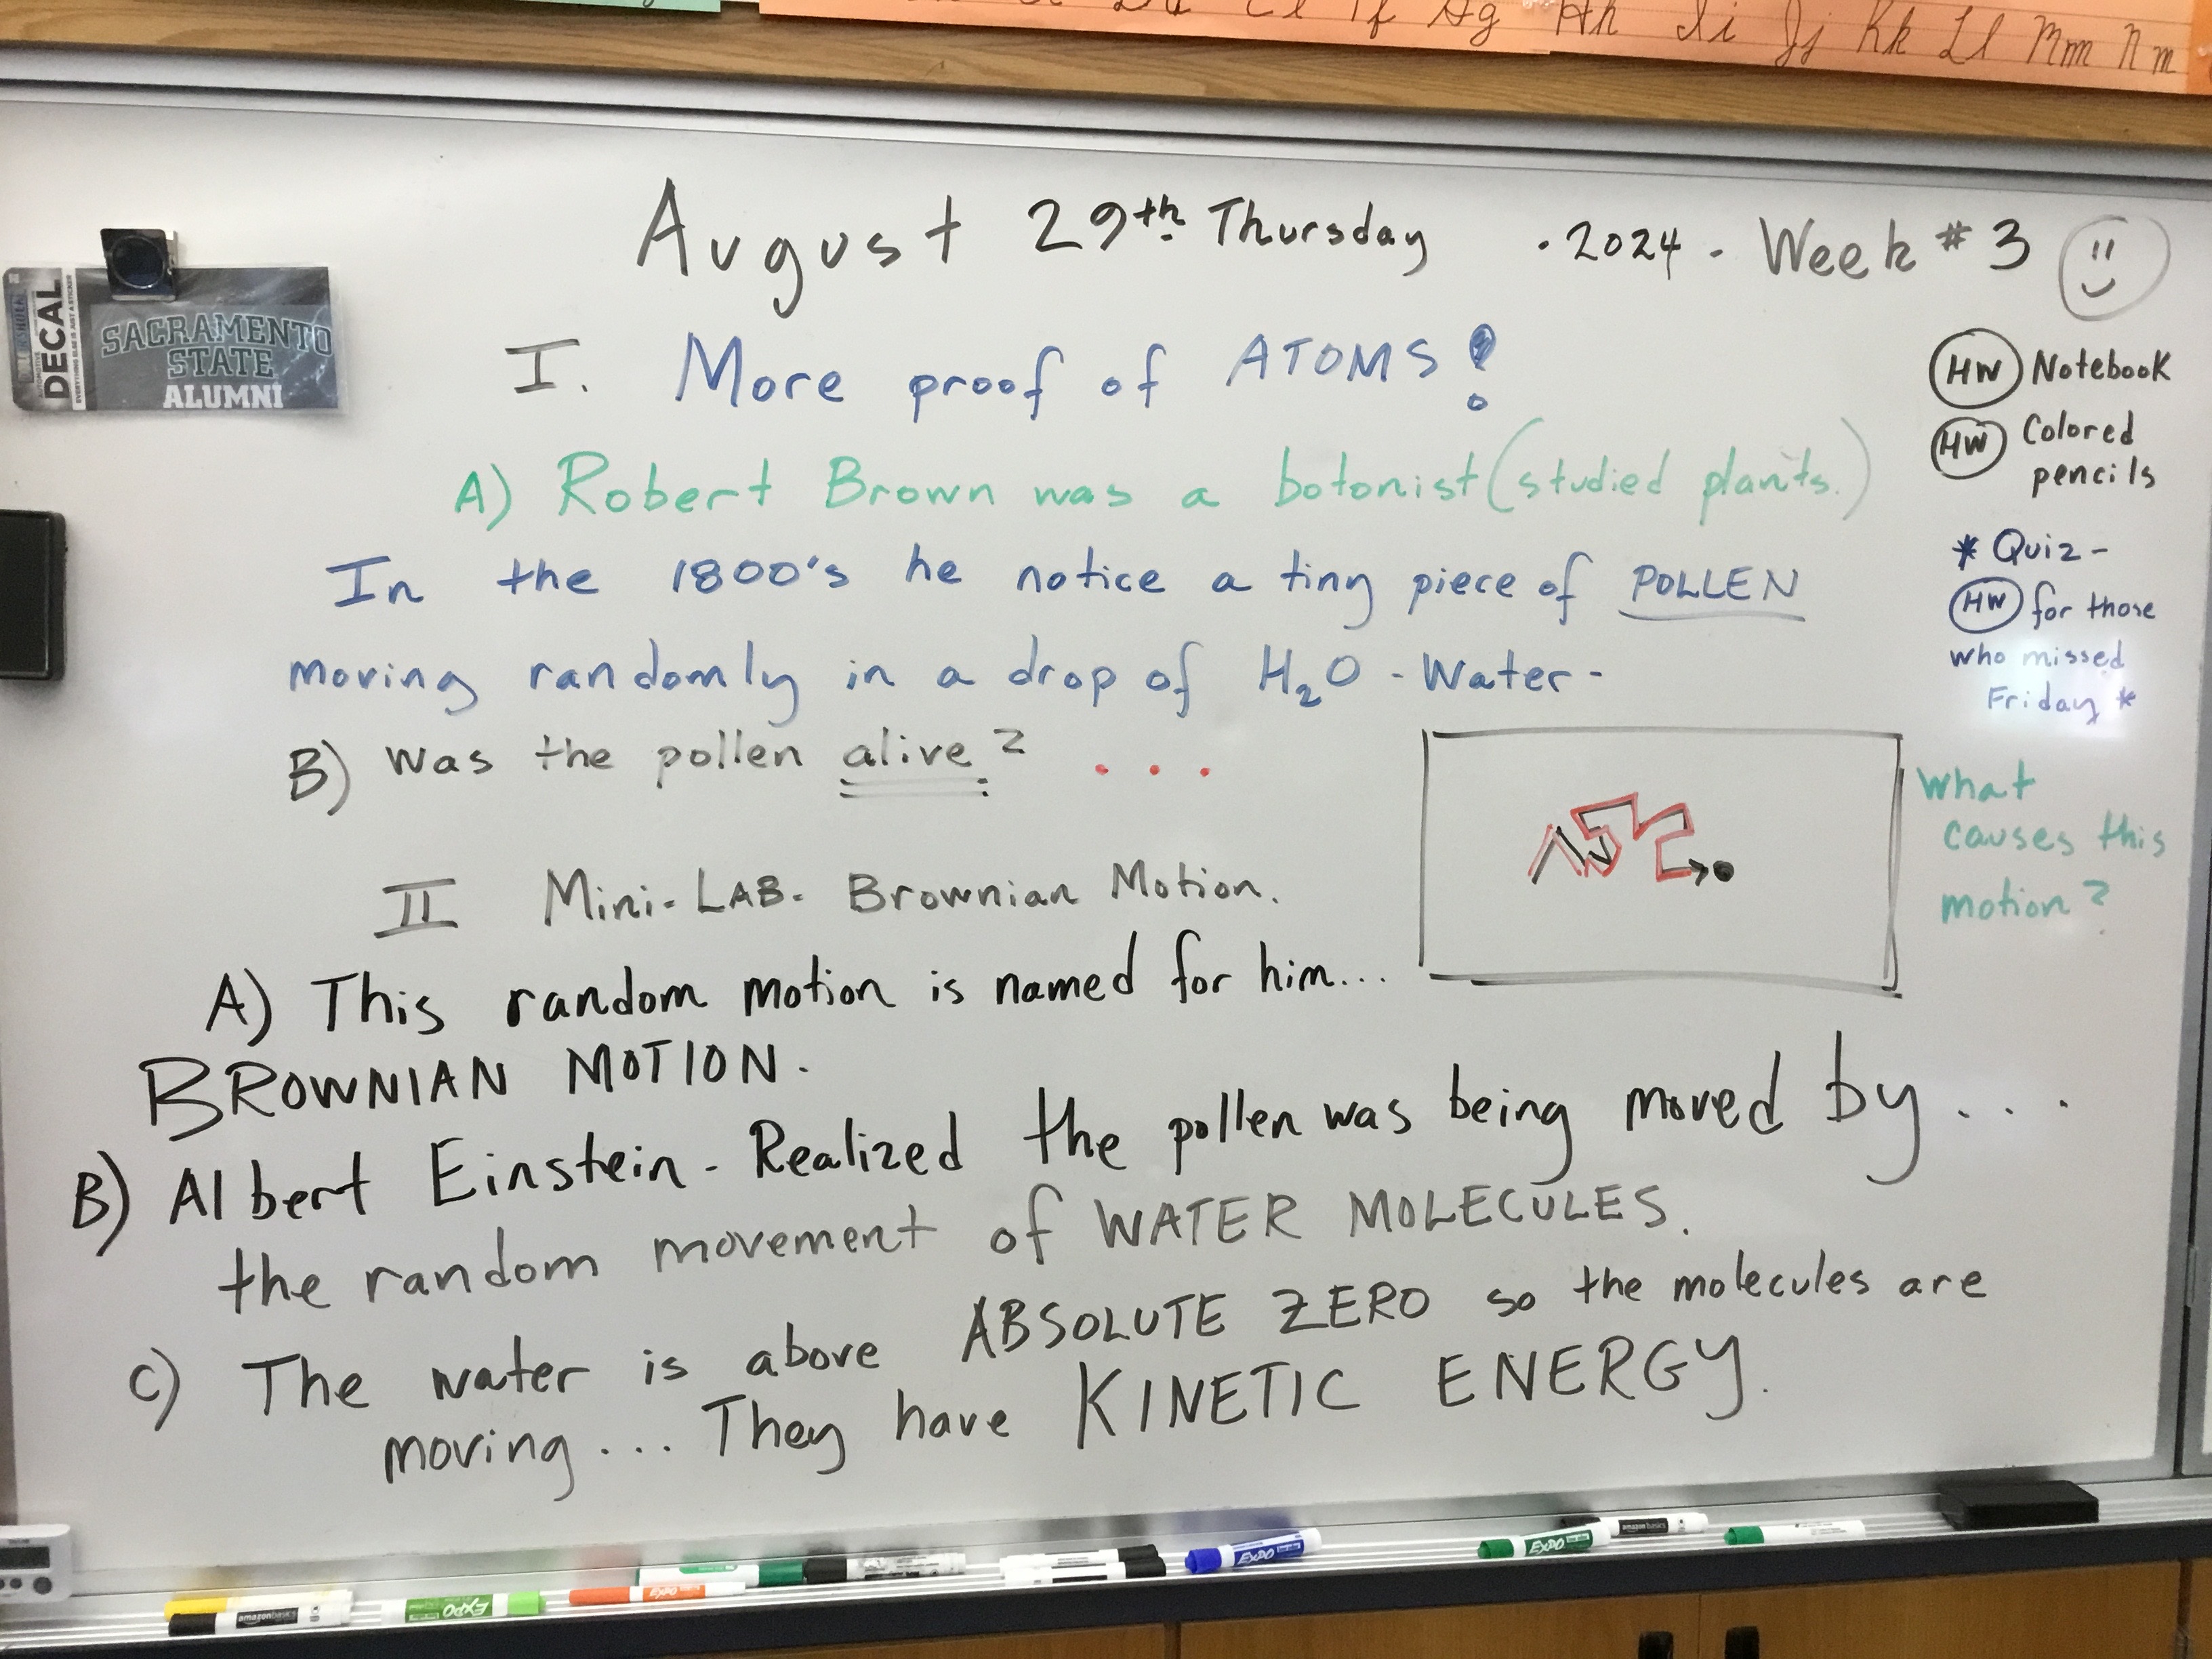 Ag Hh Ii Jj Kk Ll Mm Nn
August 29th Thursday · 2024 - Week # 3
DECAL
EVERYTHING ELSE IS JUST A STICKER
SACRAMENTO
STATE
ALUMNI
I. More proof of ATOMS!
A) Robert Brown was a botonist (studied plants.)
In the 1800's he notice a tiny piece of POLLEN
moving randomly in a drop of H₂O - Water -
B) Was the pollen alive? ...
HW Notebook
HW Colored
pencils
* Quiz -
HW for those
who missed
Friday *
What
causes this
motion?
II Mini-LAB- Brownian Motion.
A) This random motion is named for him...
BROWNIAN MOTION.
B) Albert Einstein - Realized the pollen was being moved by ...
the random movement of WATER MOLECULES.
C) The water is above ABSOLUTE ZERO so the molecules are
moving .... They have KINETIC ENERGY.
amazonbasics
EXPO
EXPO
EXPO
EXPO
amazonbasics